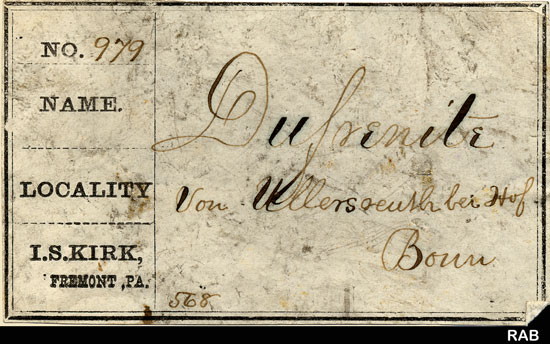 NO. 979
NAME.
Dufrenite
LOCALITY
Von Ullersreuth bei Hof
Bonn
I.S.KIRK,
FREMONT, PA.
568
RAB